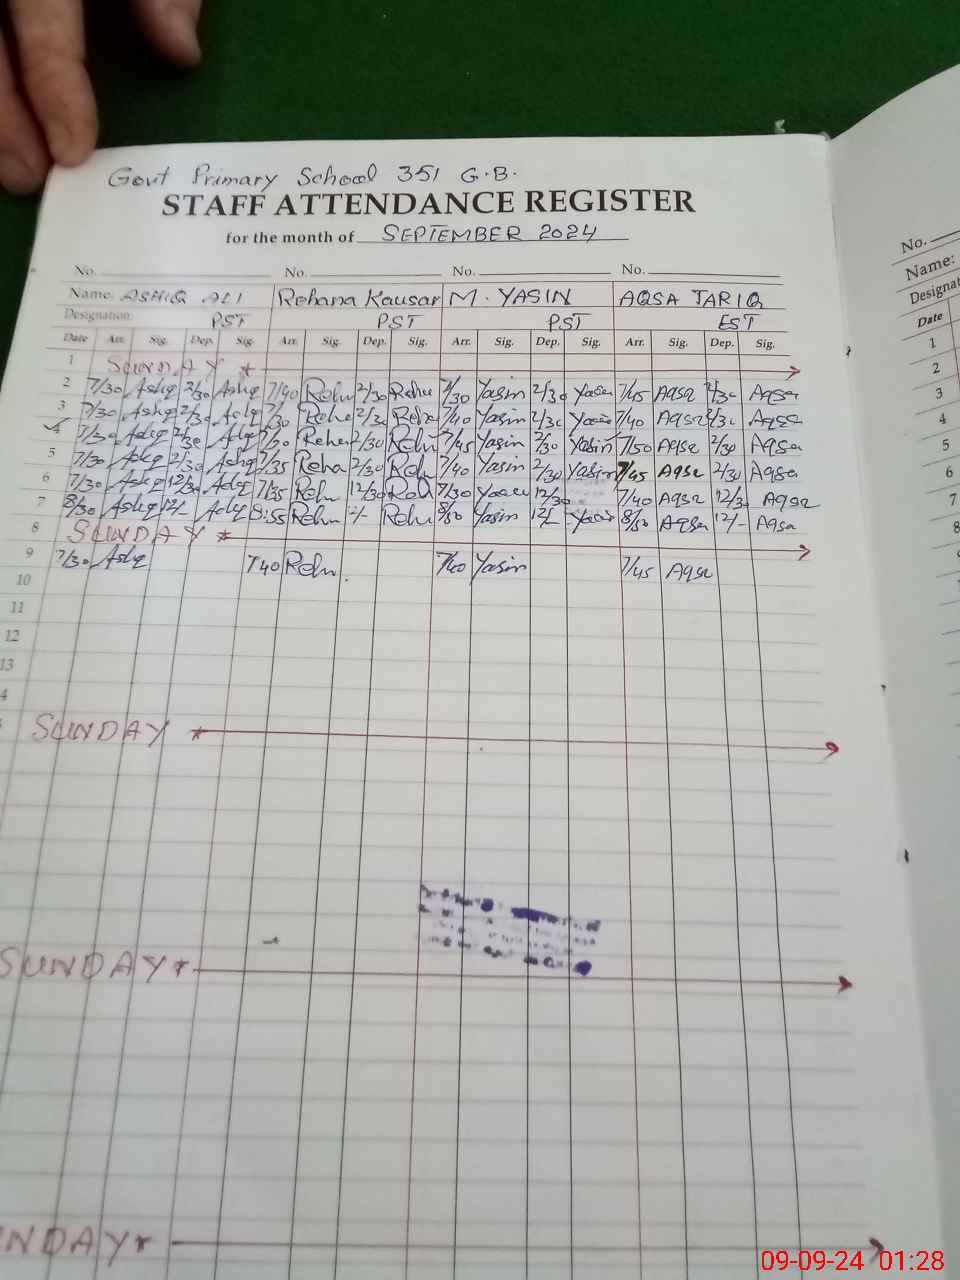 Govt Primary School 351 G.B.
STAFF ATTENDANCE REGISTER
for the month of SEPTEMBER 2024
No. No. No. No.
Name: ASHIQ ALI Rehana Kausar M. YASIN AQSA TARIQ
Designation PST PST PST EST
Date Arr. Sig. Dep. Sig. Arr. Sig. Dep. Sig. Arr. Sig. Dep. Sig. Arr. Sig. Dep. Sig.
1 SUNDAY
2 7/30 Ashq 2/30 Ashq 7/40 Rehn 2/30 Rehe 7/30 Yasin 2/30 Yasin 7/45 Aqsa 2/30 Aqsa
3 7/30 Ashq 2/30 Ashq 7/30 Rehe 2/30 Rehe 7/40 Yasin 2/30 Yasin 7/40 Aqsa 2/30 Aqsa
4 7/30 Ashq 2/30 Ashq 7/30 Rehe 2/30 Rehn 7/45 Yasin 2/30 Yasin 7/50 Aqsa 2/30 Aqsa
5 7/30 Ashq 2/30 Ashq 7/35 Reha 2/30 Reh 7/40 Yasin 2/30 Yasin 7/45 Aqsa 2/30 Aqsa
6 7/30 Ashq 12/30 Ashq 7/35 Rehn 12/30 Reh 7/30 Yasin 12/30 7/40 Aqsa 12/30 Aqsa
7 8/30 Ashq 12/- Ashq 8:55 Rehn 12/- Rehn 8/50 Yasin 12/- Yasin 8/50 Aqsa 12/- Aqsa
8 SUNDAY
9 7/30 Ashq 7/40 Rehn 7/40 Yasin 7/45 Aqsa
10
11
12
13
4
SUNDAY
SUNDAY
NDAY
No.
Name:
Designat
Date
1
2
3
4
5
6
7
8
9
10
11
12
09-09-24 01:28